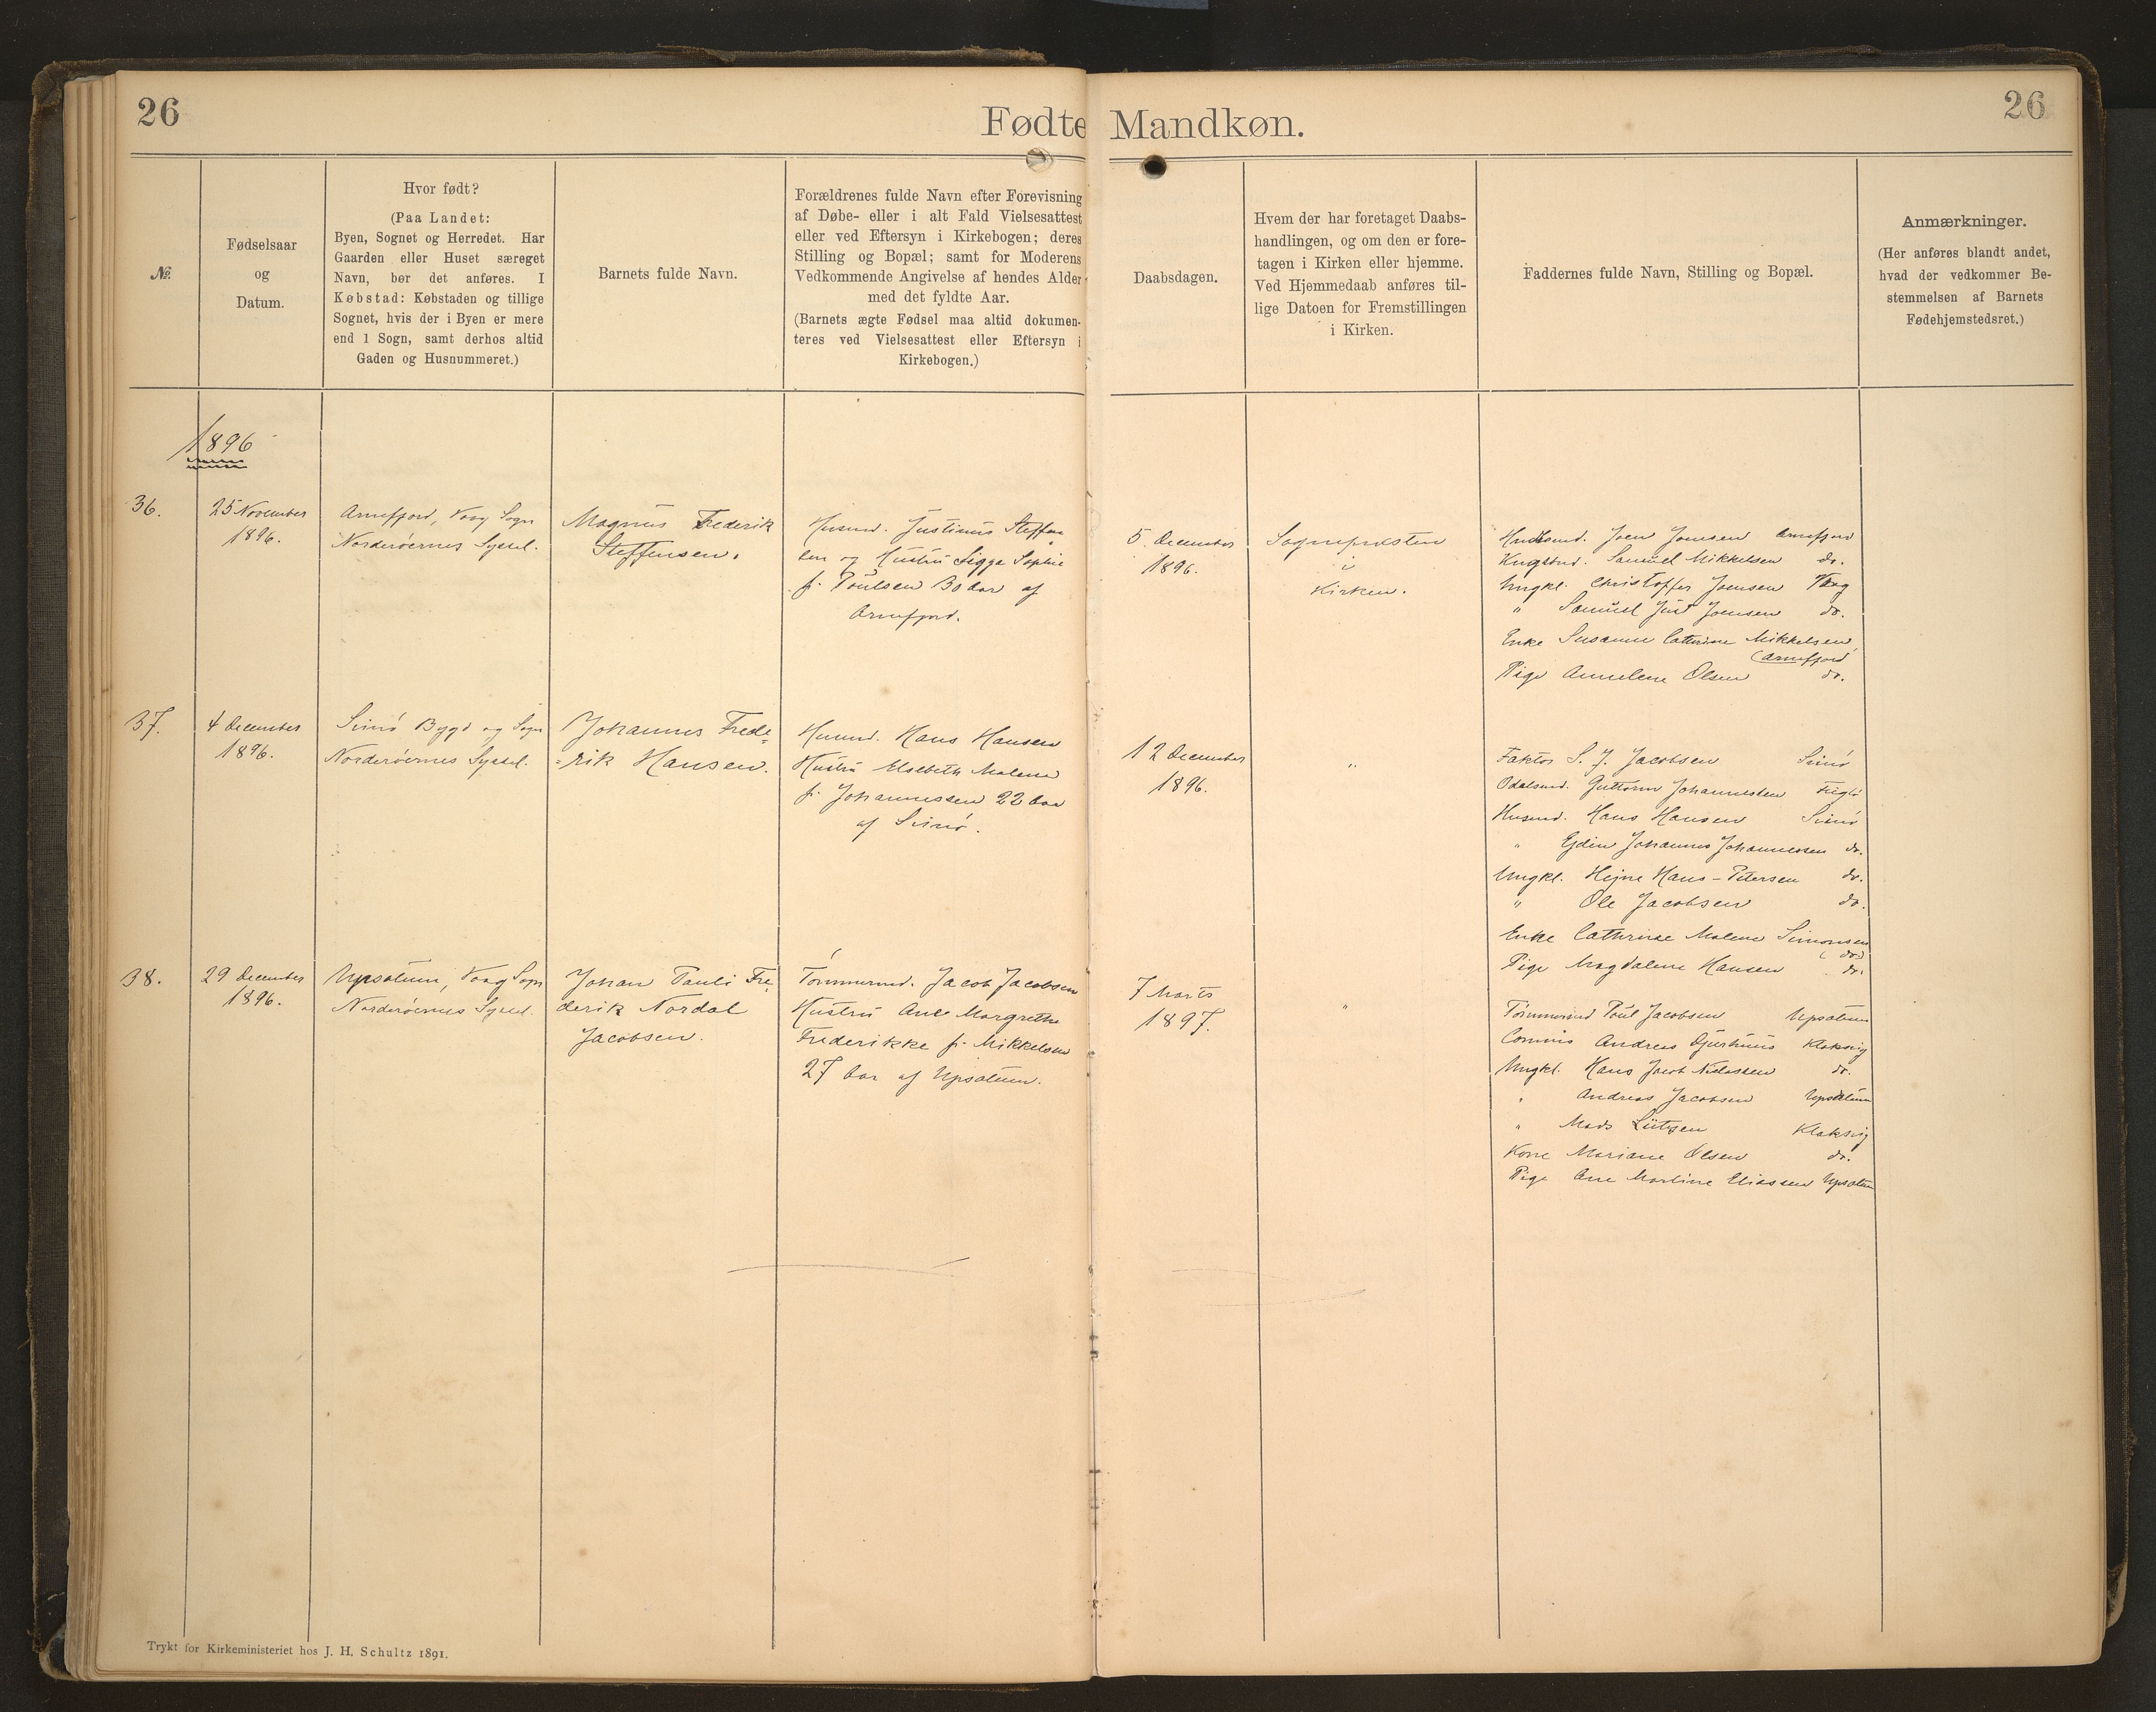 26
Fødte Mandkøn.
26
№.
Fødselsaar
og
Datum.
Hvor født?
(Paa Landet:
Byen, Sognet og Herredet. Har
Gaarden eller Huset særeget
Navn, bør det anføres. I
Købstad: Købstaden og tillige
Sognet, hvis der i Byen er mere
end 1 Sogn, samt derhos altid
Gaden og Husnummeret.)
Barnets fulde Navn.
Forældrenes fulde Navn efter Forevisning
af Døbe- eller i alt Fald Vielsesattest
eller ved Eftersyn i Kirkebogen; deres
Stilling og Bopæl; samt for Moderens
Vedkommende Angivelse af hendes Alder
med det fyldte Aar.
(Barnets ægte Fødsel maa altid dokumen-
teres ved Vielsesattest eller Eftersyn i
Kirkebogen.)
Daabsdagen.
Hvem der har foretaget Daabs-
handlingen, og om den er fore-
tagen i Kirken eller hjemme.
Ved Hjemmedaab anføres til-
lige Datoen for Fremstillingen
i Kirken.
Faddernes fulde Navn, Stilling og Bopæl.
Anmærkninger.
(Her anføres blandt andet,
hvad der vedkommer Be-
stemmelsen af Barnets
Fødehjemstedsret.)
1896
36.
25 November
1896.
Arnefjord, Vaag Sogn
Norderøernes Syssel.
Magnus Frederik
Steffensen.
Husmd. Justinus Steffen
sen og Hustru Sigga Sophie
f. Poulsen 30 Aar af
Arnefjord.
5. December
1896.
Sognepræsten
i
Kirken.
Husmd. Joen Joensen Arnefjord
Kngsbd. Samuel Mikkelsen do.
Ungkl. Christoffer Joensen Vaag
" Samuel Just Joensen do.
Enke Susanne Cathrine Mikkelsen,
(Arnefjord
Pige Annelene Olsen do.
37.
4 December
1896.
Svinø Bygd og Sogn
Norderøernes Syssel.
Johannes Frede-
-rik Hansen.
Husmd. Hans Hansen
Hustru Elsebeth Malene
f. Johannessen 22 Aar
af Svinø.
12 December
1896.
"
Faktor S. J. Jacobsen Svinø
Odelsmd. Guttorm Johannessen Fuglø
Husmd. Hans Hansen Svinø
" Ejdin Johannes Johannessen do.
Ungkl. Hejne Hans-Petersen do.
" Ole Jacobsen do.
Enke Cathrine Malene Simonsen
(do)
Pige Magdalene Hansen do.
38.
29 December
1896.
Upsatum, Vaag Sogn
Norderøernes Syssel.
Johan Pauli Fre-
derik Nordal
Jacobsen.
Tømmermd. Jacob Jacobsen
Hustru Ane Margrethe
Frederikke f. Mikkelsen
27 Aar af Upsatum.
7 Marts
1897.
"
Tømmermd Poul Jacobsen Upsatum
Commis Andreas Djurhuus Klaksvig
Ungkl. Hans Jacob Nielassen do.
" Andreas Jacobsen Upsatum
" Mads Lützen Klaksvig
Kone Mariane Olsen do.
Pige Ane Martine Eliassen Upsatum
Trykt for Kirkeministeriet hos J. H. Schultz 1891.